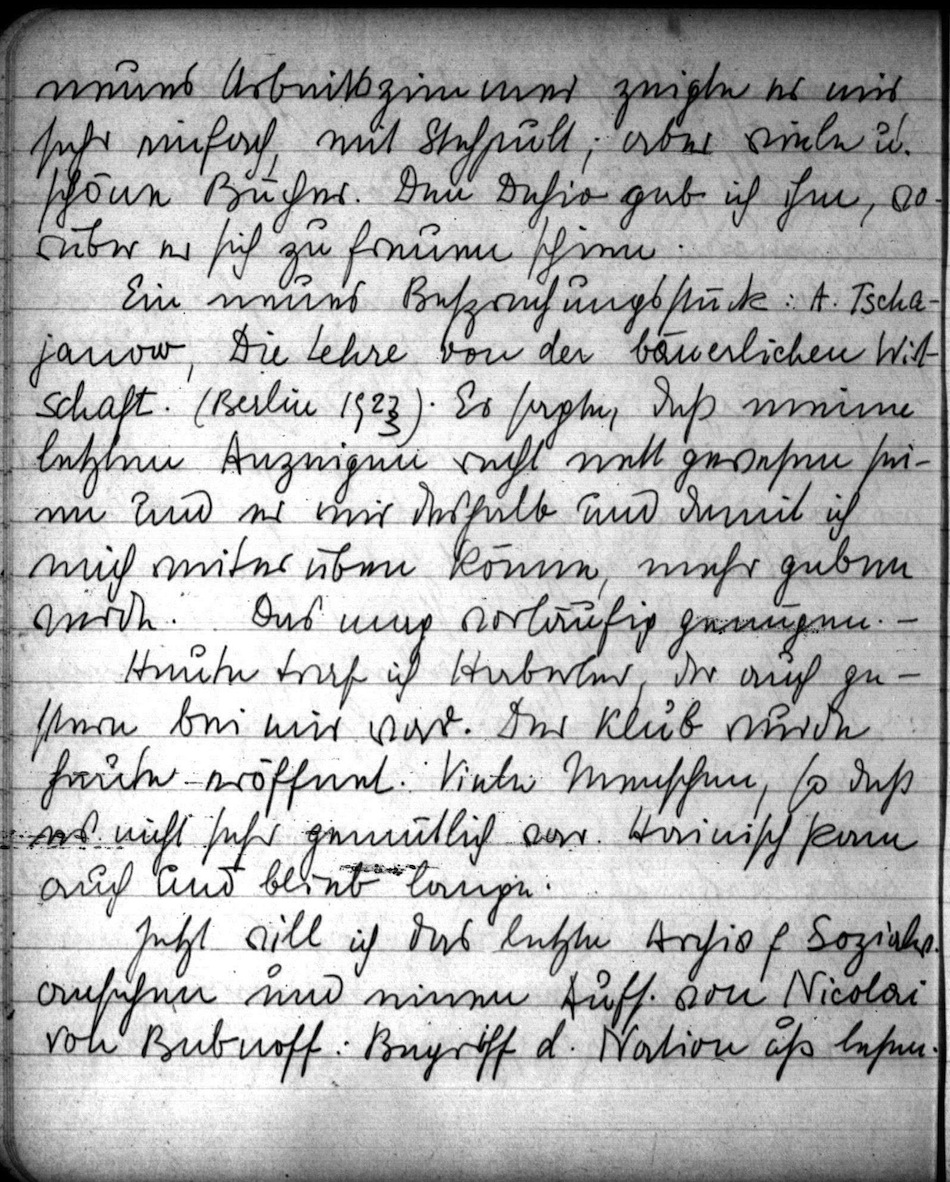 neues Arbeitszimmer zeigte er mir
sehr einfach, mit Stehpult; aber viele u.
schöne Bücher. Den Dehio gab ich ihm, wo-
rüber er sich zu freuen schien.
Ein neues Besprechungsstück: A. Tscha-
janow, Die Lehre von der bäuerlichen Wirt-
schaft. (Berlin 1923). Er sagte, daß meine
letzten Anzeigen recht nett gewesen sei-
en und er mir deshalb und damit ich
mich weiter üben könne, mehr geben
werde. Das mag vorläufig genügen. –
Heute traf ich Haberler, der auch ge-
stern bei mir war. Der Klub wurde
heute eröffnet. Viele Menschen, so daß
es nicht sehr gemütlich war. Hainisch kam
auch und blieb lange.
Jetzt will ich das letzte Archiv f Sozialw.
ansehen und einen Aufs. von Nicolai
von Bubnoff: Begriff d. Nation lesen.